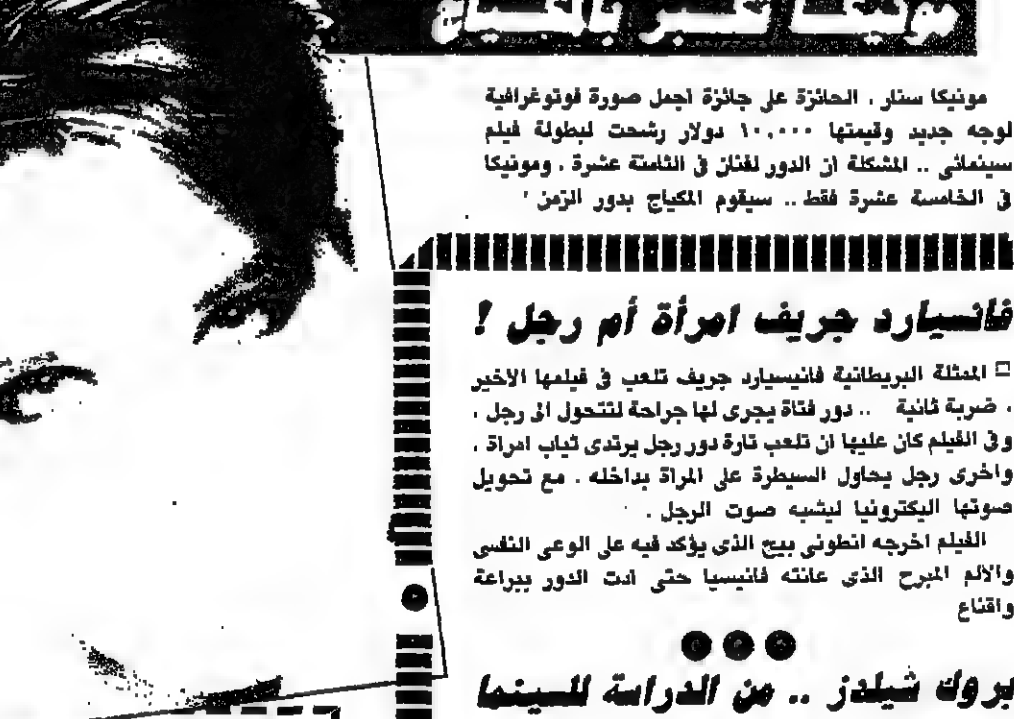 مونيكا تكبر بالمكياج
مونيكا ستار ، الحائزة على جائزة اجمل صورة فوتوغرافية
لوجه جديد وقيمتها ١٠,٠٠٠ دولار رشحت لبطولة فيلم
سينمائى .. المشكلة ان الدور لفنان فى الثامنة عشرة ، ومونيكا
فى الخامسة عشرة فقط .. سيقوم المكياج بدور الزمن !
فانسيارد جريف امرأة أم رجل !
□ الممثلة البريطانية فانيسيارد جريف تلعب فى فيلمها الاخير
، ضربة ثانية .. دور فتاة يجرى لها جراحة لتتحول الى رجل .
وفى الفيلم كان عليها ان تلعب تارة دور رجل يرتدى ثياب امراة ،
واخرى رجل يحاول السيطرة على المراة بداخله . مع تحويل
صوتها اليكترونيا ليشبه صوت الرجل .
الفيلم اخرجه انطونى بيج الذى يؤكد فيه على الوعى النفسى
والالم المبرح الذى عانته فانيسيا حتى ادت الدور ببراعة
واقناع
بروك شيلدز .. من الدراسة للسينما